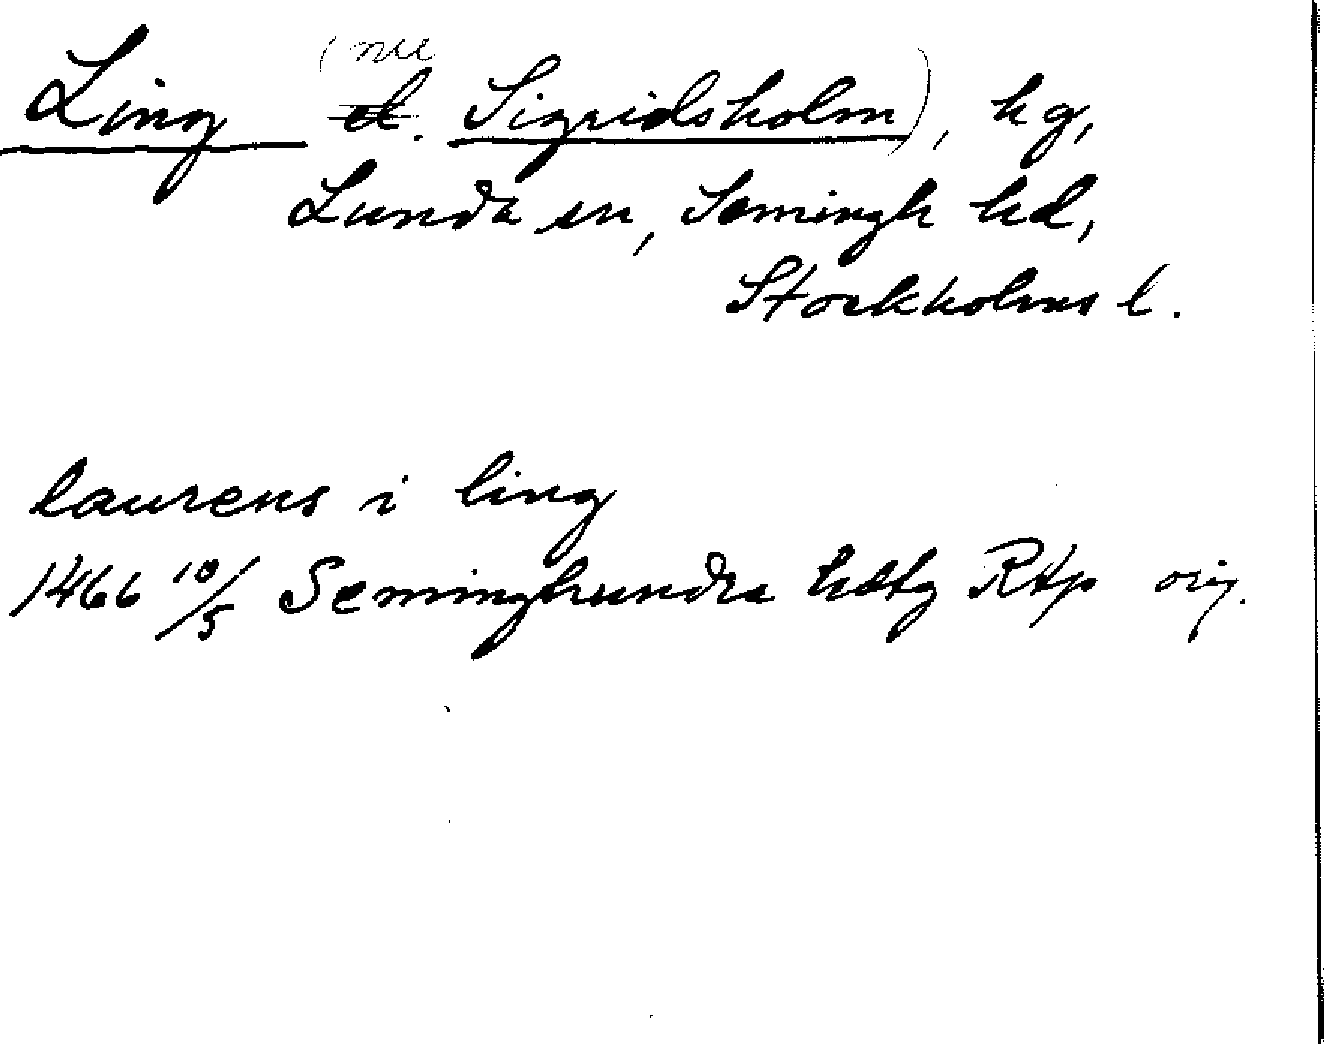 Ling (nu el. Sigridsholm), hg,
Lunda sn, Semingh hd,
Stockholms l.
laurens i ling
1466 10/5 Seminghundra hdtg Rtp orig.